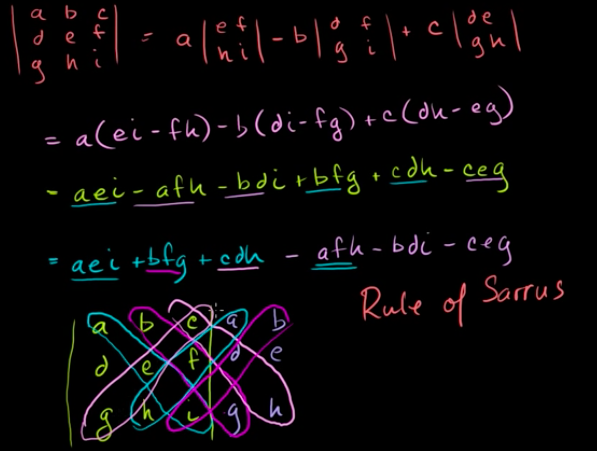 |a b c|
|d e f| = a |e f| - b |d f| + c |d e|
|g h i| |h i| |g i| |g h|
= a(ei - fh) - b(di - fg) + c(dh - eg)
- aei - afh - bdi + bfg + cdh - ceg
= aei + bfg + cdh - afh - bdi - ceg
Rule of Sarrus
a b c a b
d e f d e
g h i g h